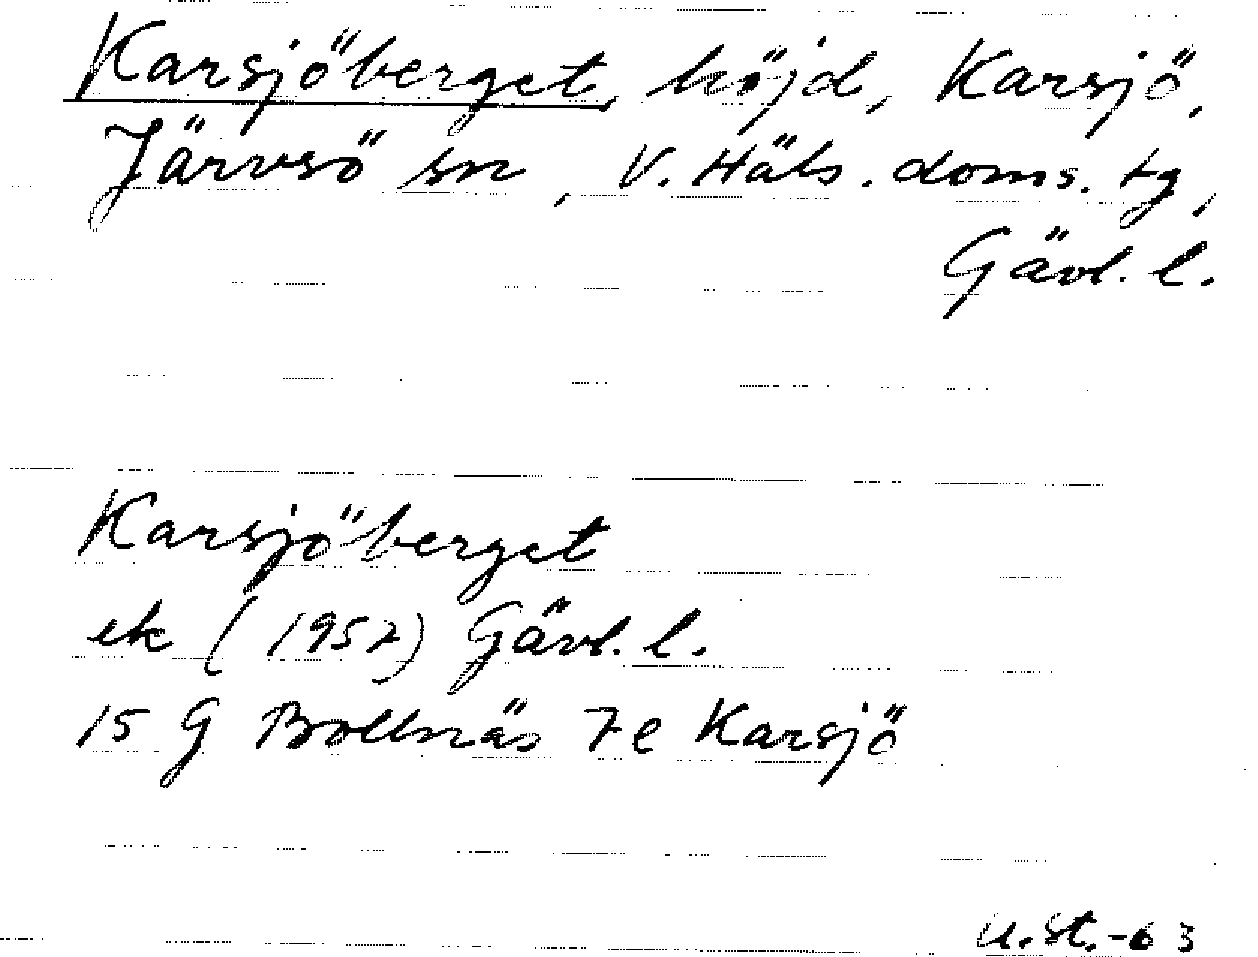 Karsjöberget, höjd, Karsjö,
Järvsö sn, V. Häls. doms. tg,
Gävl. l.
Karsjöberget
ek (1957) Gävl. l.
15 G Bollnäs 7e Karsjö
U. St. -63